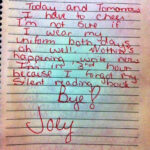 Today and Tomorrow
I have to cheer
I'm not sure if
I wear my
uniform both days
oh well. Nothin's
happening, write now
I'm in 2nd hour
because I forgot my
silent reading book
Bye!
Joly